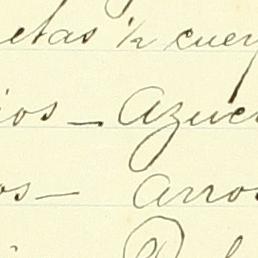 etas ½ cuer
ios - Azucar
os - Arros